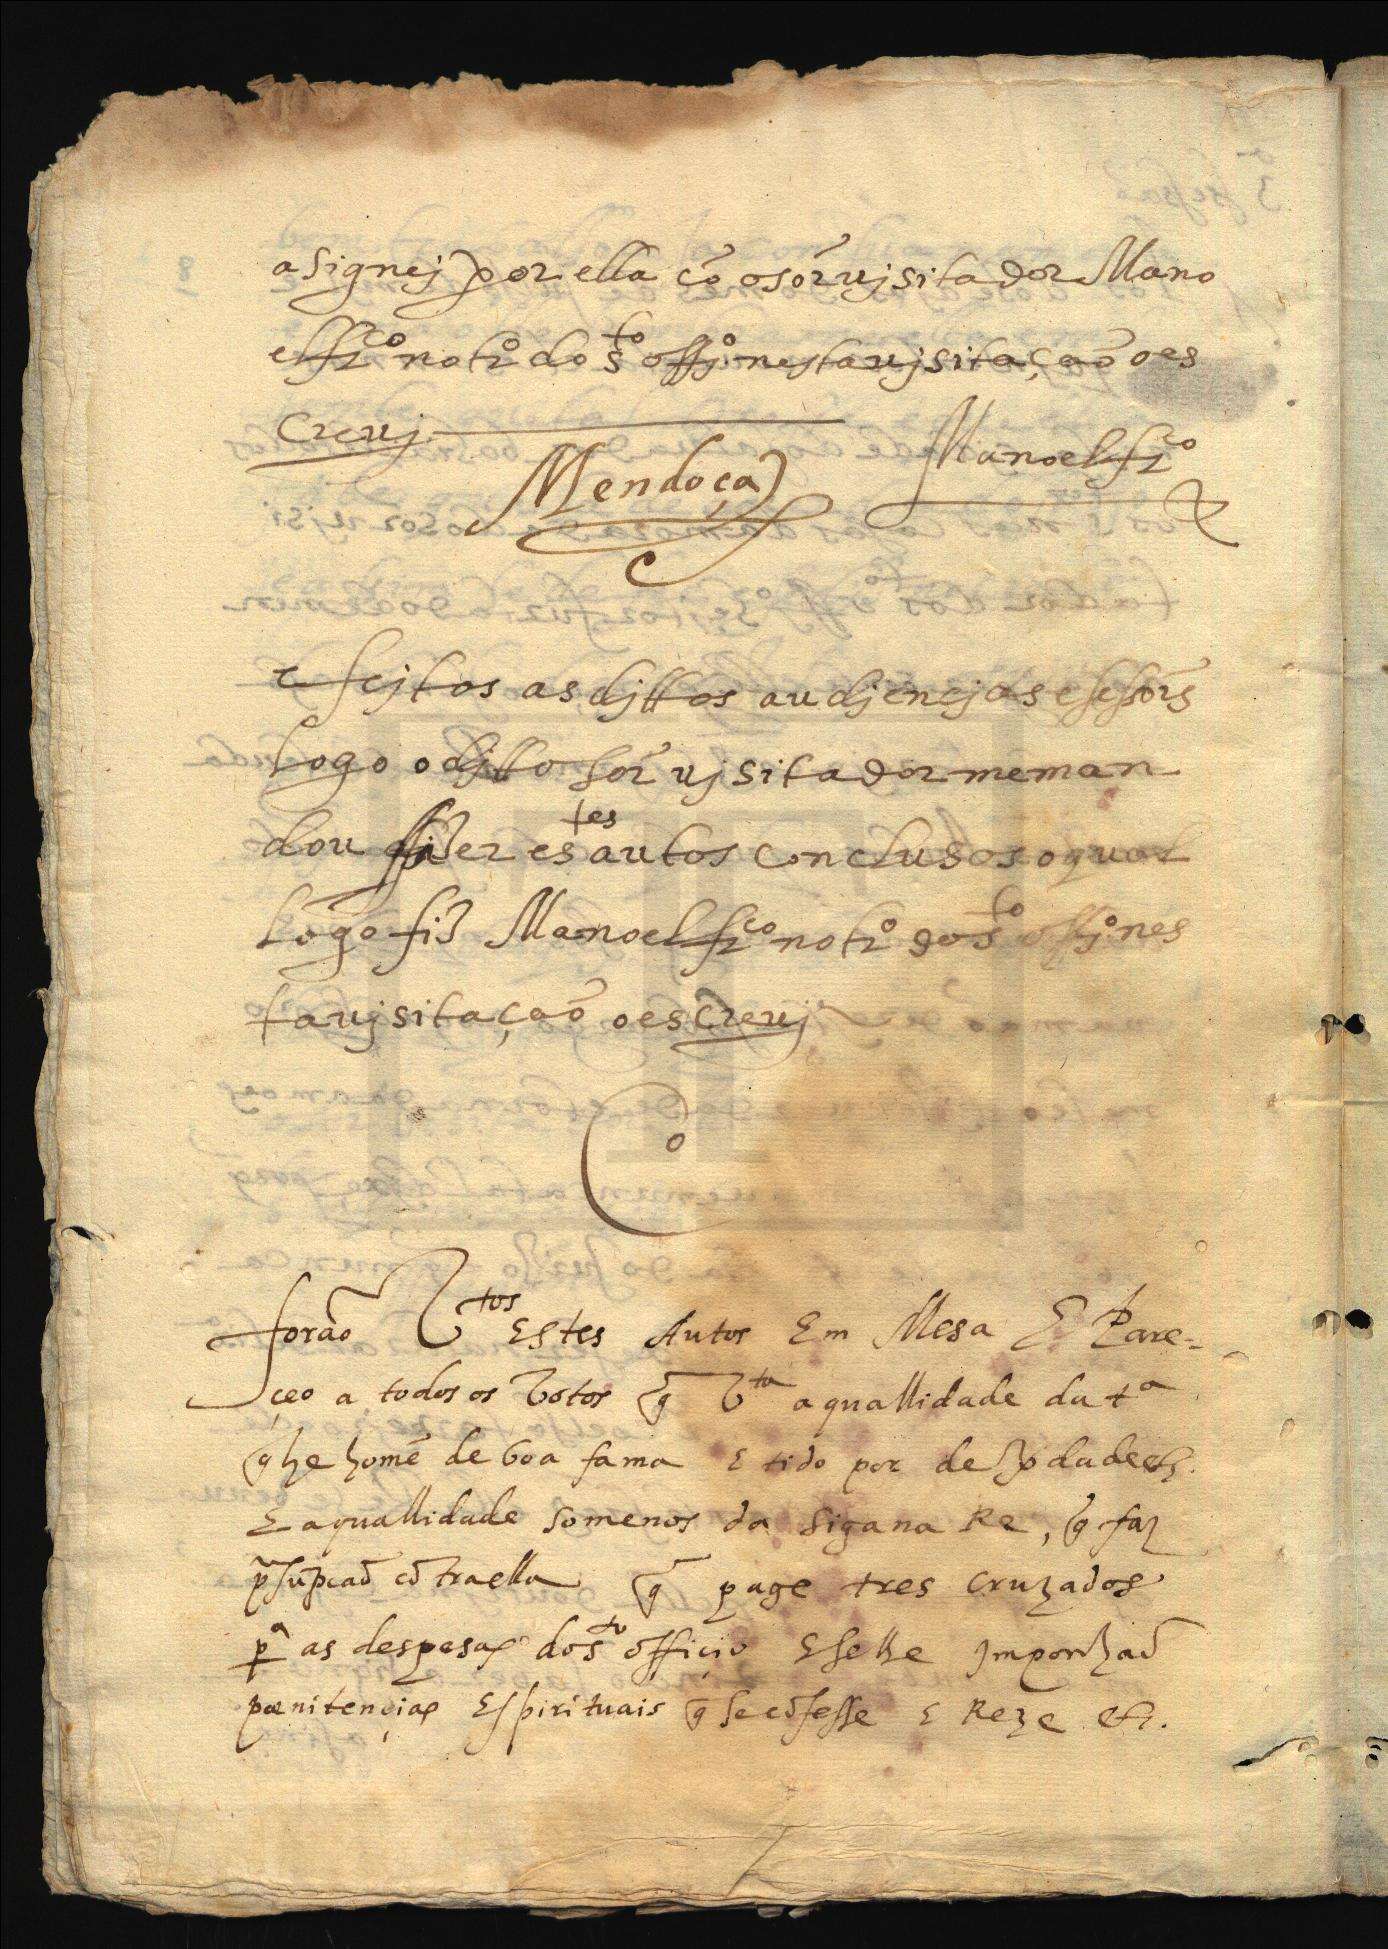 asignej por ella cõ o sor vjsitador Mano
el frco notro do sto offjo nesta vjsitação o es
crevj
Mendoça Manoel frco
e feitos as djttos audjencjas e sessõis
logo o djtto sor vjsitador me man
dou fazer estes autos conclusos o qual
logo fiz Manoel frco notro do sto offjo nes
ta vjsitação o escrevj
forão Vtos Estes Autos Em Mesa E Pare-
çeo a todos os Votos q̃ Vta a quallidade da ta
q̃ he homẽ de boa fama E tido por de Vdade etc.
E a quallidade somenos da Sigana Re, q̃ faz
psũpcaõ cõtra ella q̃ page tres cruzados
pa as despesas do sto officio E se lhe Imponhaõ
pœnitençias Espirituais q̃ se cõfesse E Reze etc.